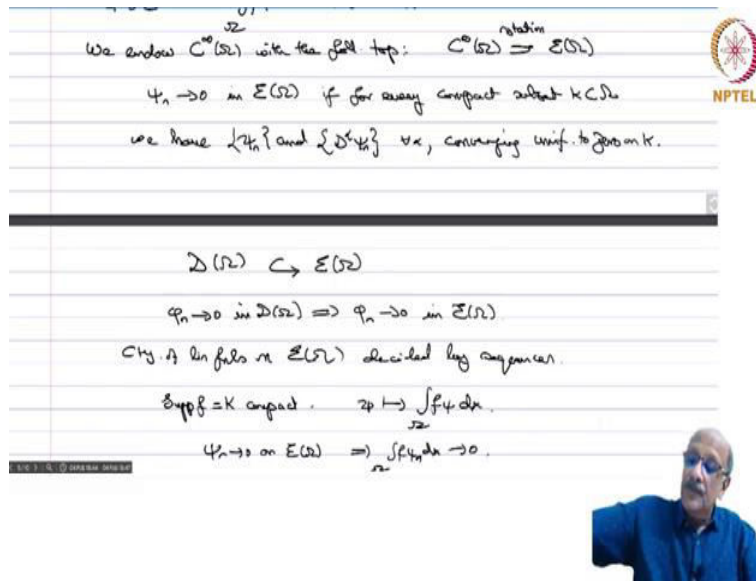 Ω
We endow C^∞(Ω) with the foll. top: C^∞(Ω) notation ⇒ ℰ(Ω)
NPTEL
ψₙ → 0 in ℰ(Ω) if for every compact subset K ⊂ Ω
we have {ψₙ} and {D^αψₙ} ∀α, converging unif. to zero on K.
𝒟(Ω) ↪ ℰ(Ω)
φₙ → 0 in 𝒟(Ω) ⇒ φₙ → 0 in ℰ(Ω).
Cty. of lin fnls on ℰ(Ω) decided by sequences.
Supp f = K compact. ψ ↦ ∫_Ω fψ dx.
ψₙ → 0 in ℰ(Ω) ⇒ ∫_Ω fψₙ dx → 0.